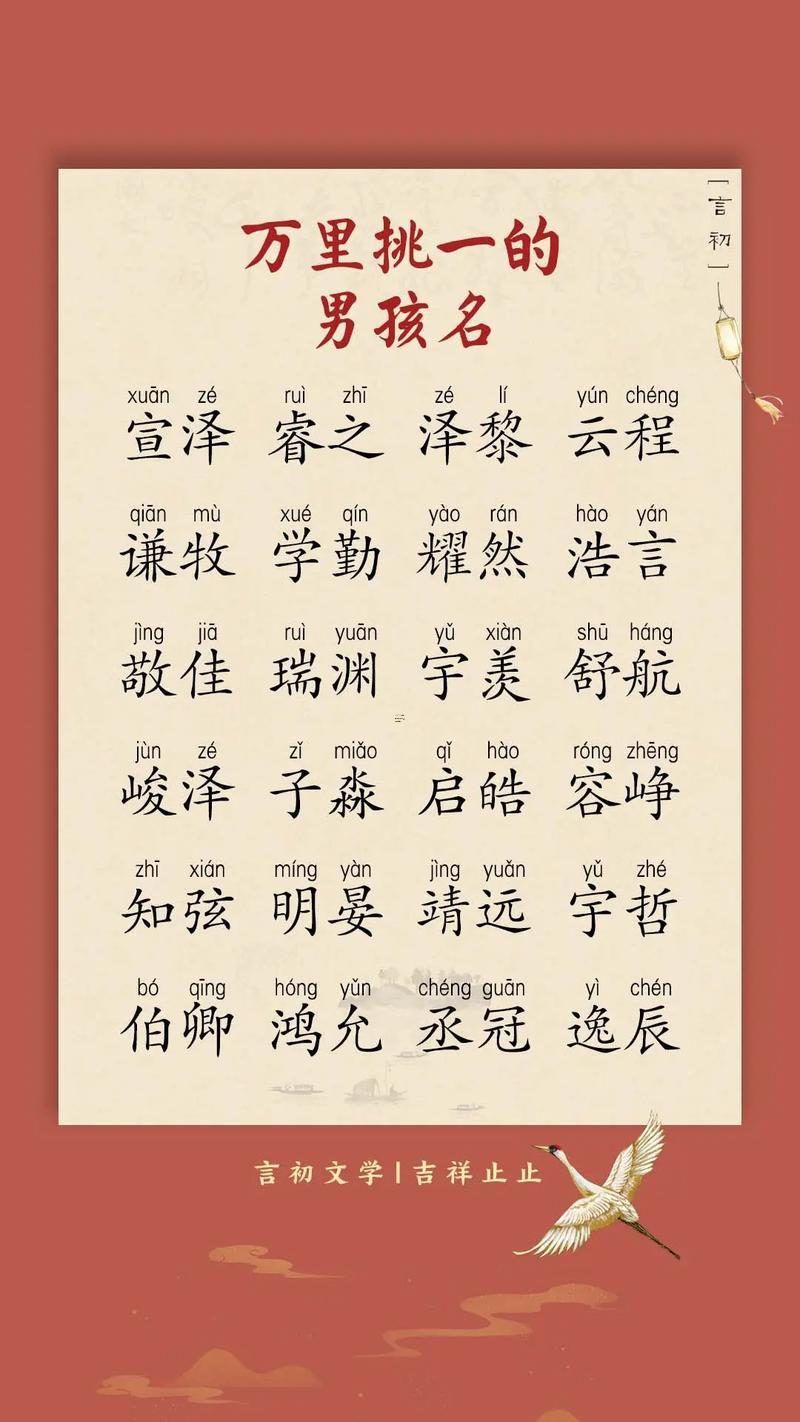 [言初]
万里挑一的
男孩名
xuān zé ruì zhī zé lí yún chéng
宣泽 睿之 泽黎 云程
qiān mù xué qín yào rán hào yán
谦牧 学勤 耀然 浩言
jìng jiā ruì yuān yǔ xiàn shū háng
敬佳 瑞渊 宇羡 舒航
jùn zé zǐ miǎo qǐ hào róng zhēng
峻泽 子淼 启皓 容峥
zhī xián míng yàn jìng yuǎn yǔ zhé
知弦 明晏 靖远 宇哲
bó qīng hóng yǔn chéng guān yì chén
伯卿 鸿允 丞冠 逸辰
言初文学|吉祥止止